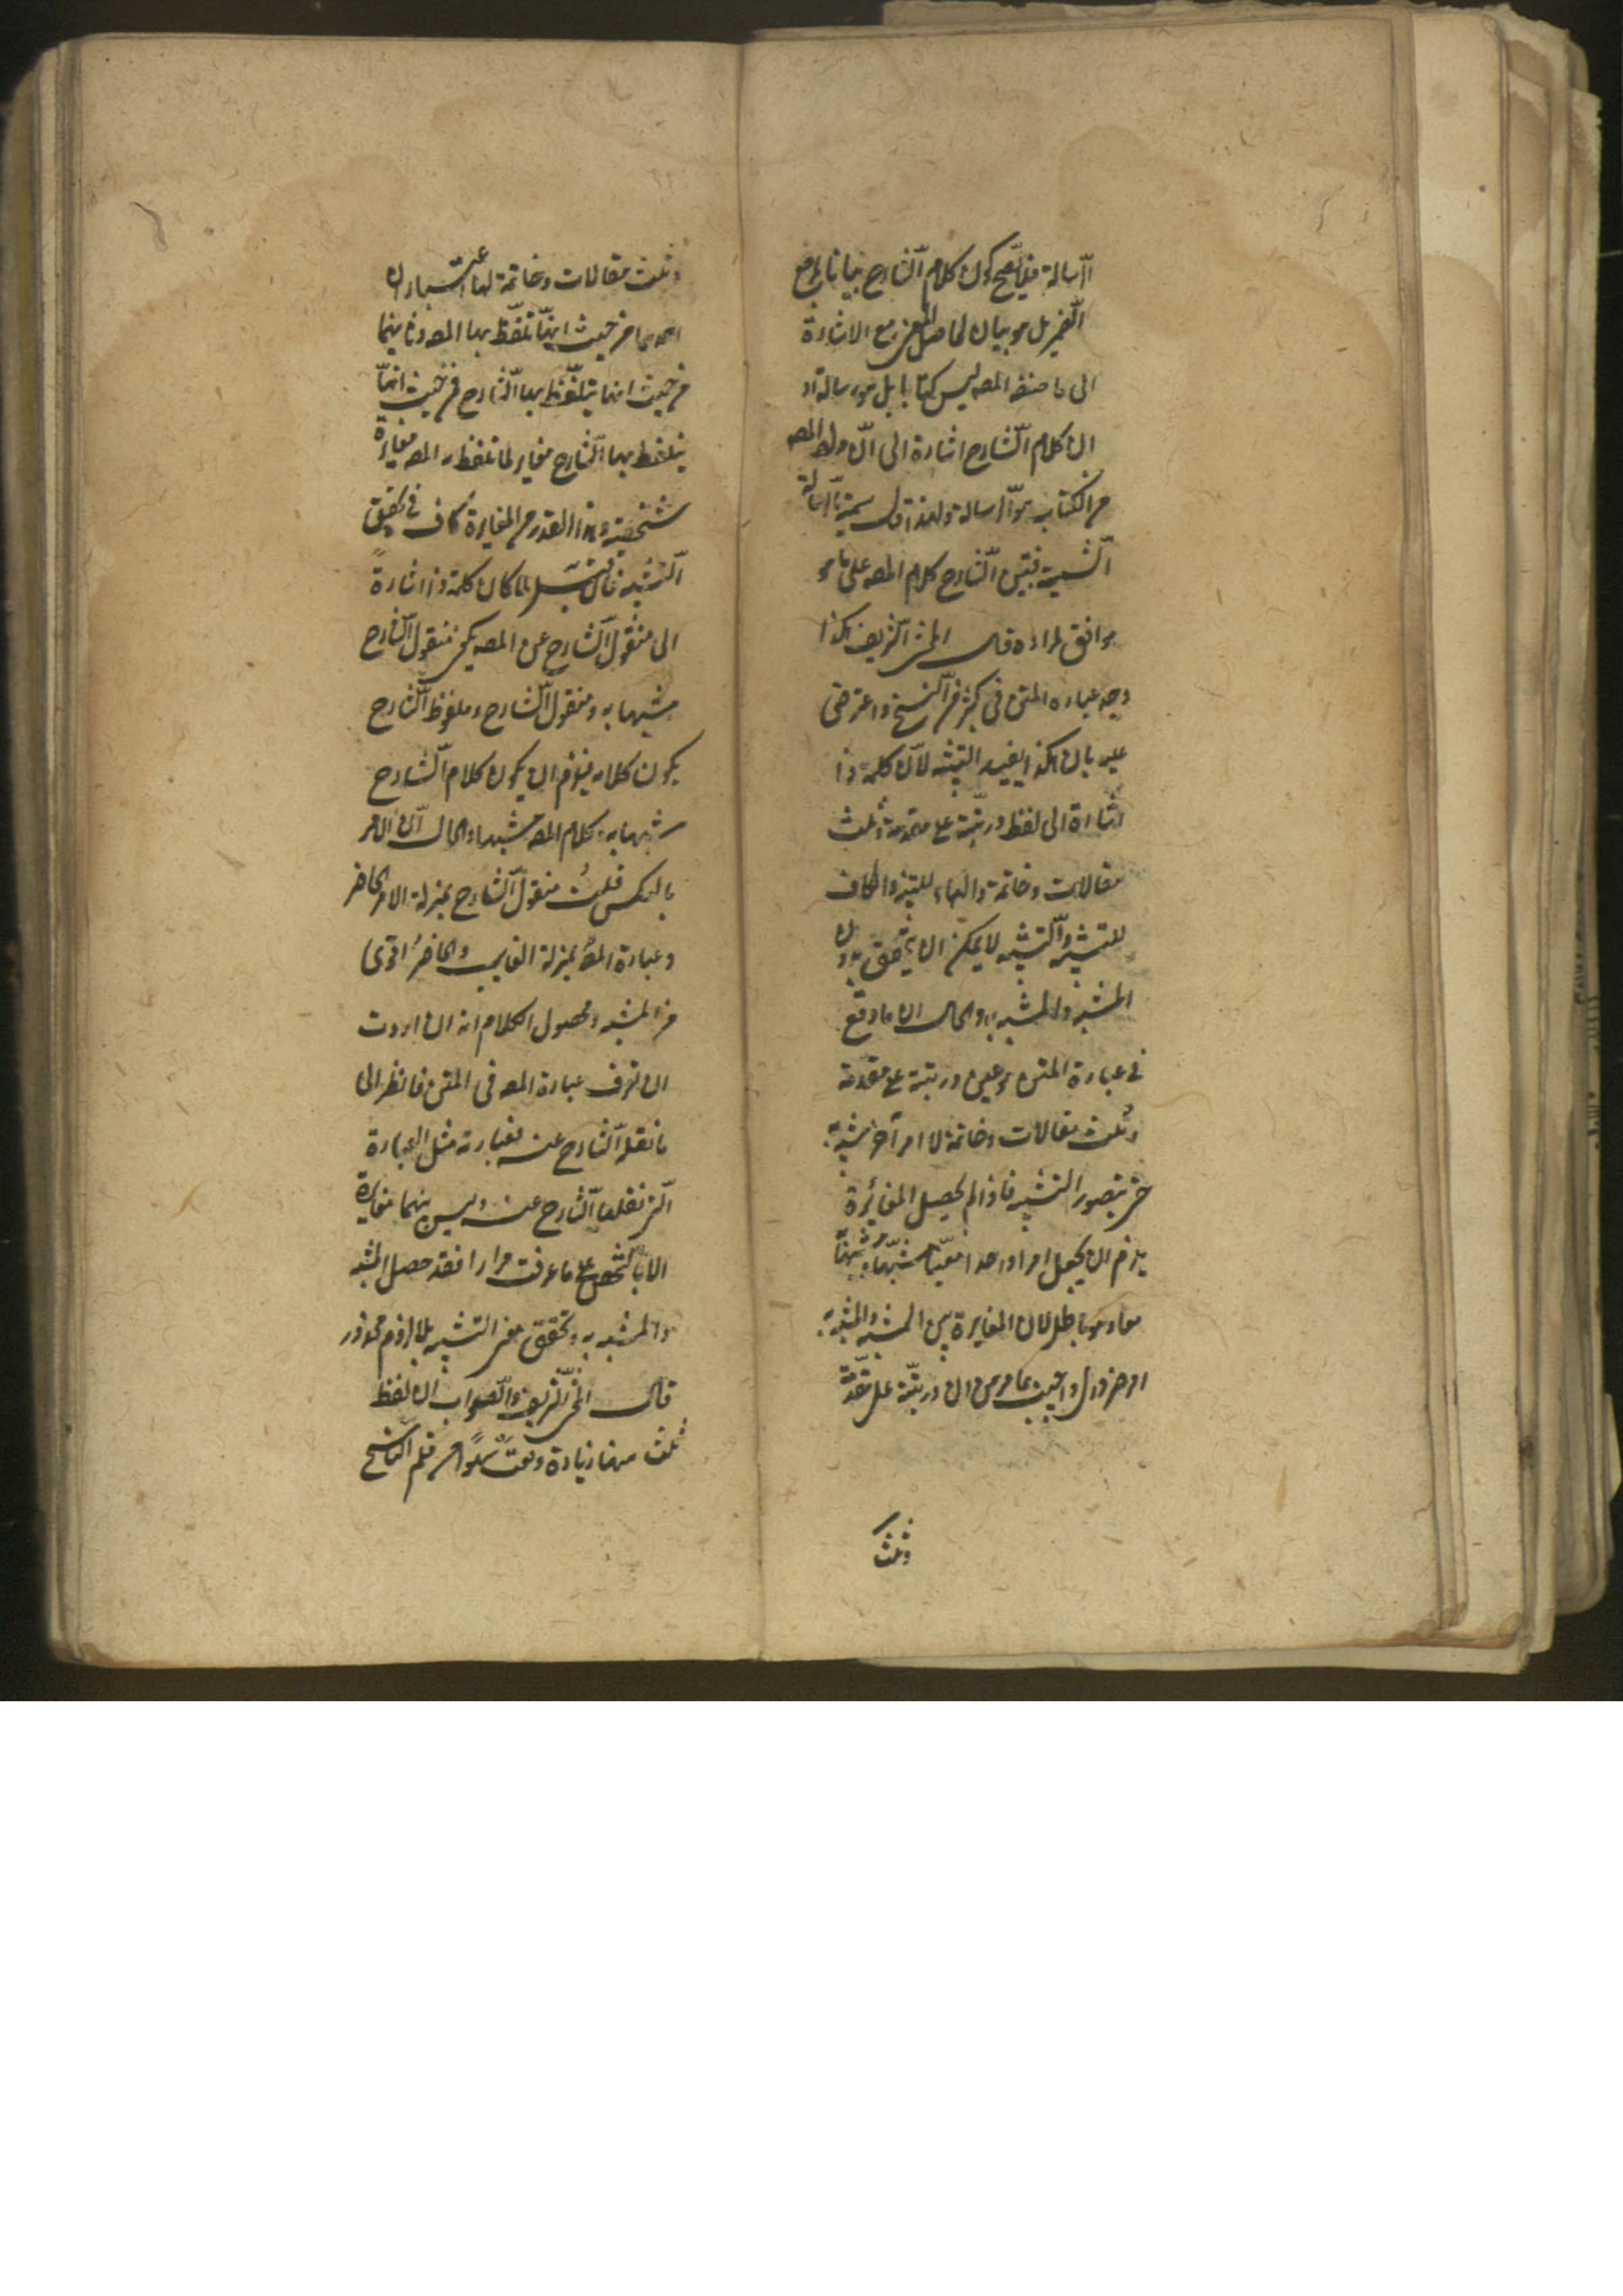 الرسالة فلا يصح كون كلام الشارح بيانا لمرجع
الضمير بل هو بيان لحاصل المعنى مع الاشارة
الى ما صنفه المصه ليس كتابا بل هو رسالة او
ان كلام الشارح اشارة الى ان مراد المصه
من الكتاب هو الرسالة ولهذا قال سميته بالرسالة
الشمسية فبين الشارح كلام المصه على ما هو
موافق لمراده قال المحشى الشريف هكذا
وجد عباره المتن فى كثير من النسخ واعترض
عليه بان هكذا يفيد التشبيه لان كلمة ذا
اشارة الى لفظ ورتبته على مقدمة وثلث
مقالات وخاتمة والهاء للتنبيه والكاف
للتشبيه والتشبيه لا يمكن ان يتحقق بدون
المشبه والمشبه به والحال ان ما وقع
فى عبارة المتن هو عين ورتبته على مقدمة
وثلث مقالات وخاتمة لا امر آخر يشبه به
حتى يتصور التشبيه فاذا لم يحصل المغائرة
يلزم ان يجعل امرا واحدا معينا مشبها ومشبها به
معا وهو باطل لان المغايرة بين المشبه والمشبه به
امر ضرورى واجيب بما مر من ان ورتبته على مقدمة
وثلث
وثلث مقالات وخاتمة لها اعتباران
احدهما من حيث انها تلفظ بها المصه وثانيهما
من حيث انها يتلفظ بها الشارح فمن حيث انها
يتلفظ بها الشارح مغاير لما تلفظ به المصه مغايرة
شخصية وهذا القدر من المغايرة كاف فى تحقيق
التشبيه فان قيل لما كان كلمة ذا اشارةً
الى منقول الشارح عن المصه يكون منقول الشارح
مشبها به ومنقول الشارح وملفوظ الشارح
يكون كلامه فيلزم ان يكون كلام الشارح
مشبها به وكلام المصه مشبها والحال ان الامر
بالعكس قلت منقول الشارح بمنزلة الامر الحاضر
وعبارة المصه بمنزلة الغايب والحاضر اقوى
من المشبه ومحصول الكلام انه ان اردت
ان تعرف عبارة المصه فى المتن فانظر الى
ما نقله الشارح عنه فعبارته مثل العبارة
التى نقلها الشارح عنه وليس بينهما مغايرة
الا بالتشخص على ما عرفت مرارا فقد حصل المشبه
والمشبه به وتحقق معنى التشبيه بلا لزوم محذور
قال المحشى الشريف والصواب ان لفظ
ثلث ههنا زيادة وقعت سهوا من قلم الناسخ